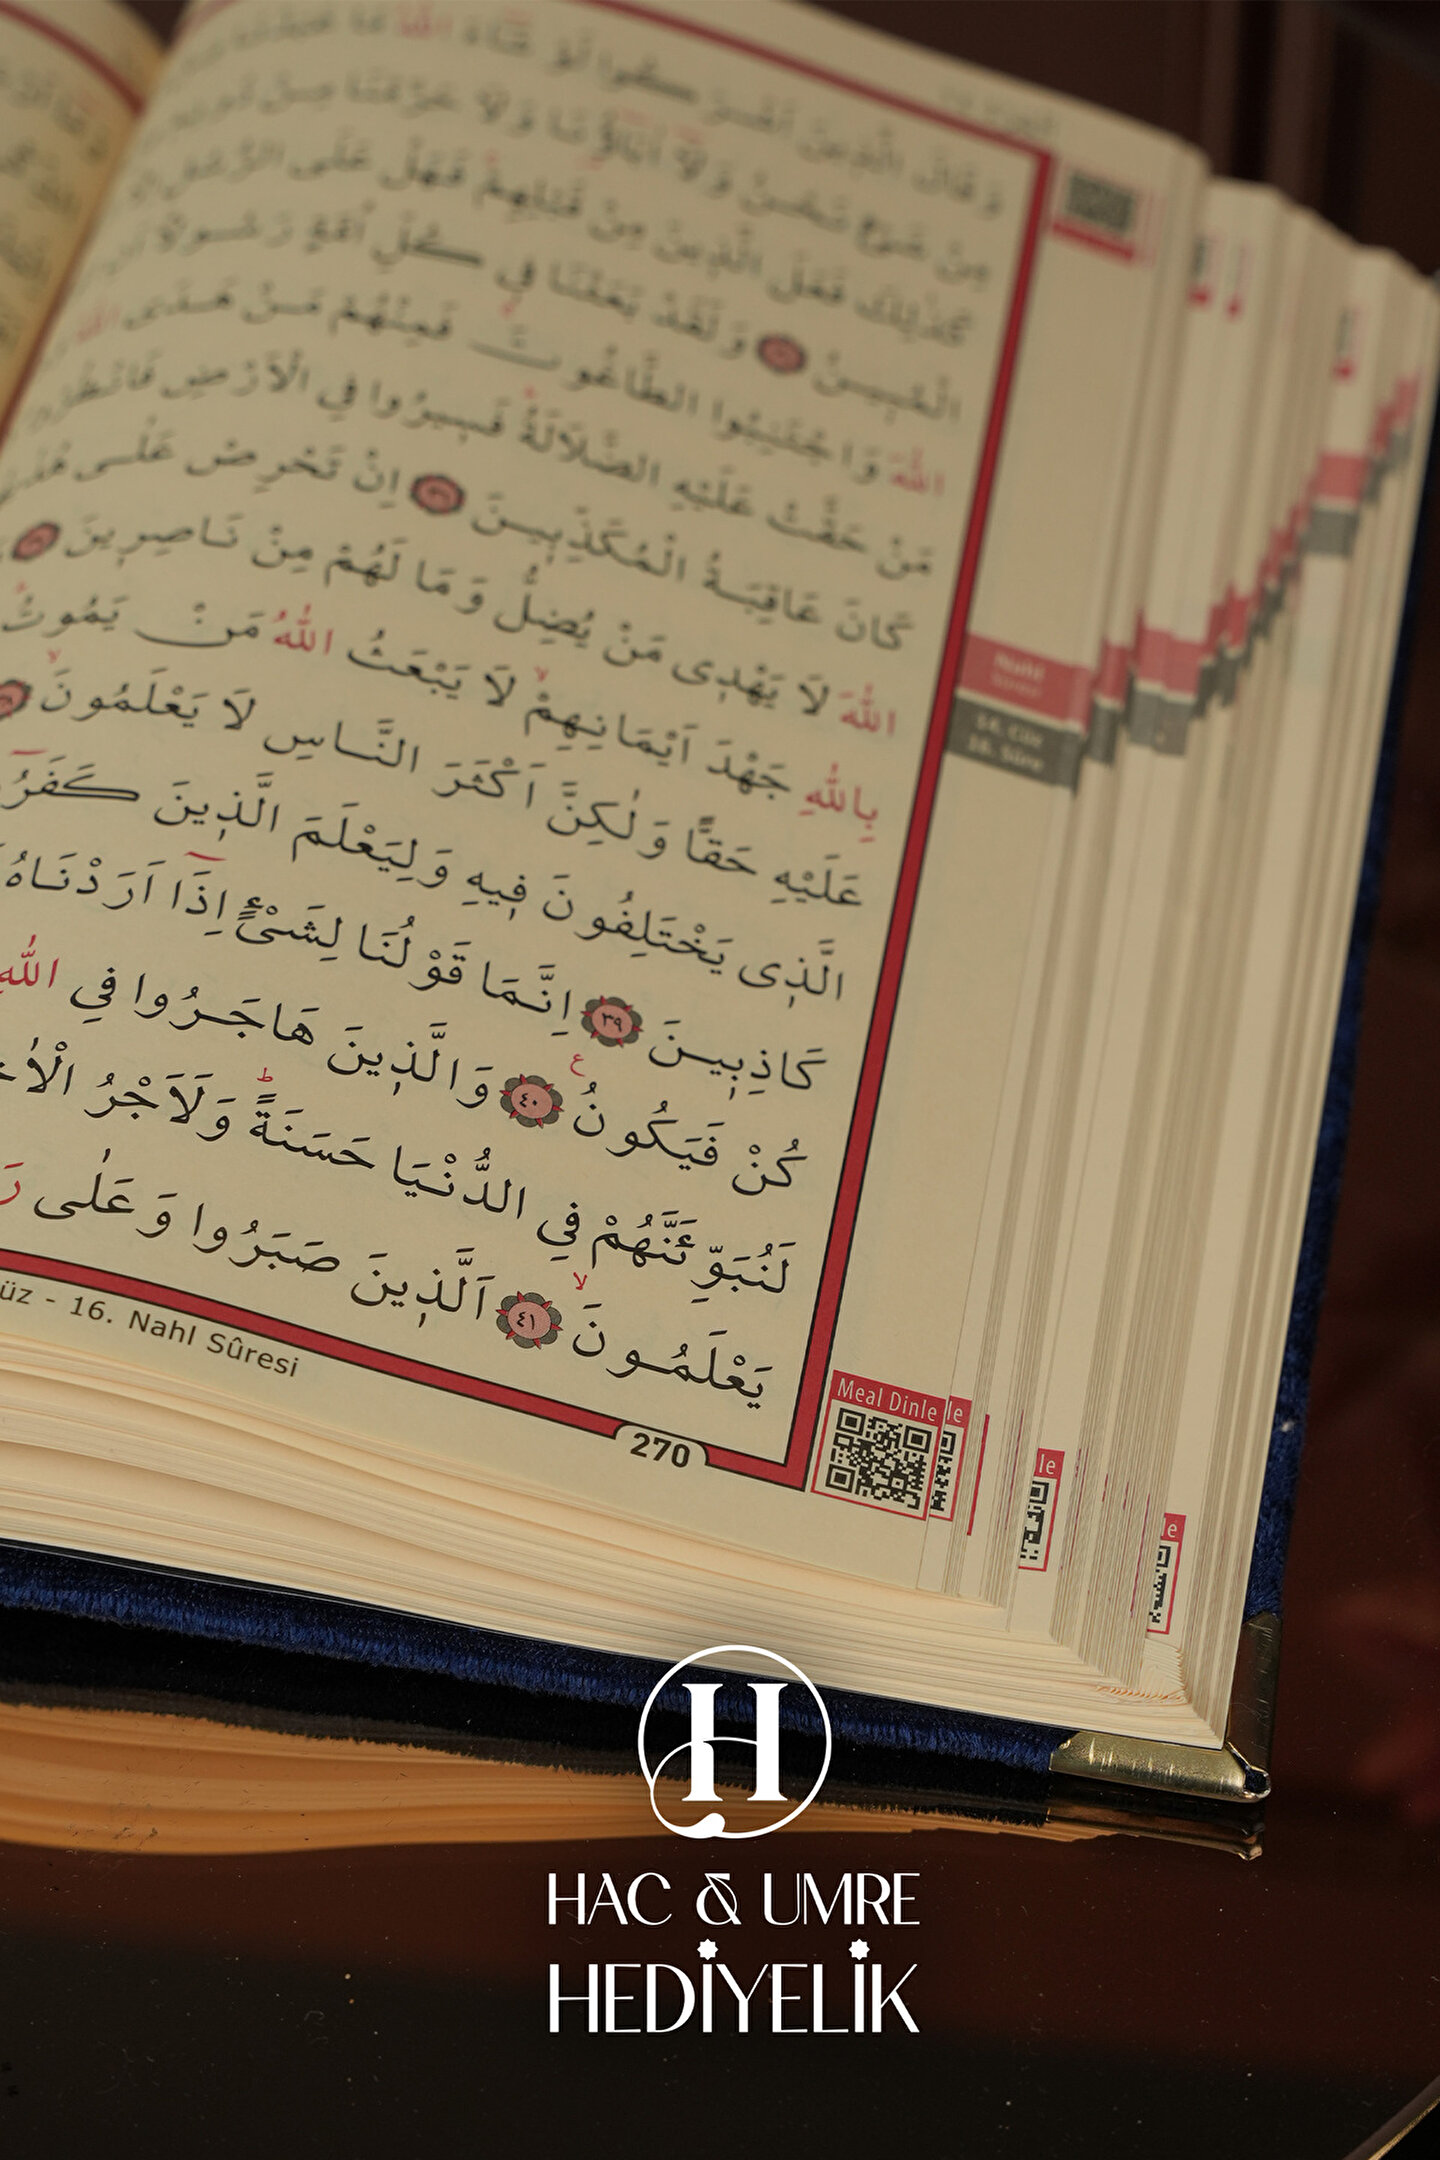 وَقَالَ الَّذِينَ اَشْرَكُوا لَوْ شَاءَ اللّٰهُ مَا عَبَدْنَا
مِنْ شَيْءٍ نَحْنُ وَلَا اٰبَاؤُنَا وَلَا حَرَّمْنَا مِنْ دُونِهِ
كَذٰلِكَ فَعَلَ الَّذِينَ مِنْ قَبْلِهِمْ فَهَلْ عَلَى الرُّسُلِ
الْمُبِينُ ﴿٣٥﴾ وَلَقَدْ بَعَثْنَا فِي كُلِّ اُمَّةٍ رَسُولًا
اللّٰهَ وَاجْتَنِبُوا الطَّاغُوتَ فَمِنْهُمْ مَنْ هَدَى اللّٰهُ
مَنْ حَقَّتْ عَلَيْهِ الضَّلَالَةُ فَسِيرُوا فِي الْاَرْضِ فَانْظُرُوا
كَانَ عَاقِبَةُ الْمُكَذِّبِينَ ﴿٣٦﴾ اِنْ تَحْرِصْ عَلٰى
اللّٰهَ لَا يَهْدِى مَنْ يُضِلُّ وَمَا لَهُمْ مِنْ نَاصِرِينَ ﴿٣٧﴾
بِاللّٰهِ جَهْدَ اَيْمَانِهِمْۙ لَا يَبْعَثُ اللّٰهُ مَنْ يَمُوتُ
عَلَيْهِ حَقًّا وَلٰكِنَّ اَكْثَرَ النَّاسِ لَا يَعْلَمُونَۙ ﴿٣٨﴾
الَّذِى يَخْتَلِفُونَ فِيهِ وَلِيَعْلَمَ الَّذِينَ كَفَرُٓوا
كَاذِبِينَ ﴿٣٩﴾ اِنَّمَا قَوْلُنَا لِشَيْءٍ اِذَٓا اَرَدْنَاهُ
كُنْ فَيَكُونُ ﴿٤٠﴾ ع وَالَّذِينَ هَاجَرُوا فِي اللّٰهِ
لَنُبَوِّئَنَّهُمْ فِي الدُّنْيَا حَسَنَةًۜ وَلَاَجْرُ
يَعْلَمُونَۙ ﴿٤١﴾ اَلَّذِينَ صَبَرُوا وَعَلٰى
Nahl
14. Cüz
16. Sûre
üz - 16. Nahl Sûresi
270
Meal Dinle
le
le
le
H
HAC & UMRE
HEDİYELİK